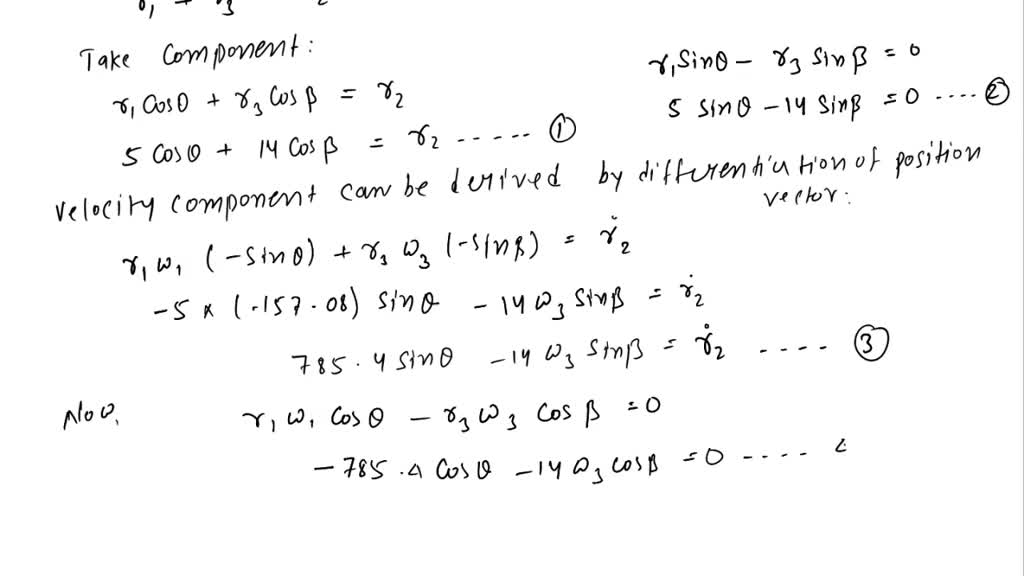 r₁ + r₃ 2
Take component:
r₁ Cosθ + r₃ Cosβ = r₂
r₁ Sinθ – r₃ Sinβ = 0
5 Cosθ + 14 Cosβ = r₂ ...... ①
5 Sinθ – 14 Sinβ = 0 .... ②
velocity component can be derived by differentiation of position
vector:
r₁ ω₁ (-Sinθ) + r₃ ω₃ (-Sinβ) = ṙ₂
-5 × (-157.08) Sinθ – 14 ω₃ Sinβ = ṙ₂
785.4 Sinθ – 14 ω₃ Sinβ = ṙ₂ .... ③
Now,
r₁ ω₁ Cosθ – r₃ ω₃ Cosβ = 0
– 785.4 Cosθ – 14 ω₃ Cosβ = 0 ....